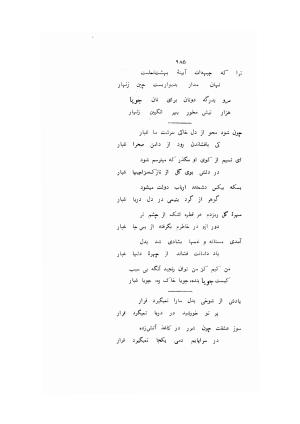 ۹۸۵
ترا که چهره‌ات آیینهٔ بهشت‌نماست
نهان مدار بدیدارست چین زنهار
مرو بدرگه دونان برای نان جویا
هزار نیش مخور بهر انگبین زنهار
چون شود محو از دل خاکی سرشت ما غبار
کی بافشاندن رود از دامن صحرا غبار
ای نسیم از کوی او مگذر که میترسم شود
در دلش بوی گل از نازک‌مزاجیها غبار
بسکه بیکس دشمند ارباب دولت میشود
گوهر از گرد یتیمی در دل دریا غبار
سرمهٔ گل ریزد هر قطره اشک از چشم تر
دور از در خاطر گرفته از ما غبار
آمدی مستانه و غمها بشادی شد بدل
باد دامانت فشاند از چهرهٔ دلها غبار
من کیم کز من توان رنجید آنگه بی سبب
کیست جویا بنده، جویا خاک ره، جویا غبار
یادش از شوخی بدل ما را نمیگیرد قرار
پرتو خورشید در دریا نمیگیرد قرار
سوز عشقت چون شرر در کاغذ آتش‌زده
در سراپایم دمی یکجا نمیگیرد قرار